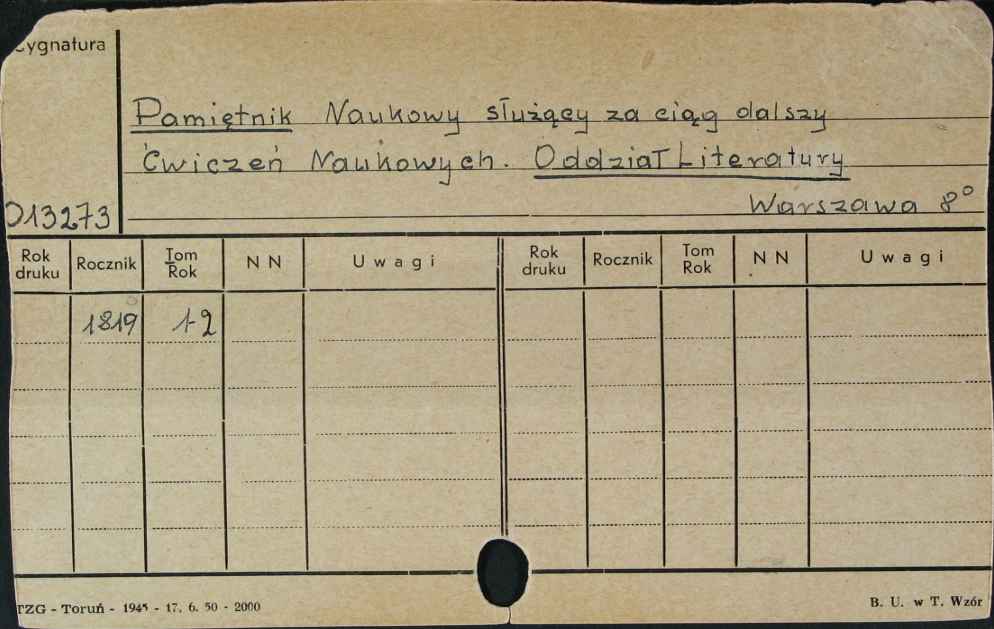 Sygnatura
Pamiętnik Naukowy służący za ciąg dalszy
Ćwiczeń Naukowych. Oddział Literatury
013273 Warszawa 8°
Rok druku Rocznik Tom Rok N N Uwagi Rok druku Rocznik Tom Rok N N Uwagi
1819 1-2
TZG - Toruń - 1945 - 17. 6. 50 - 2000 B. U. w T. Wzór